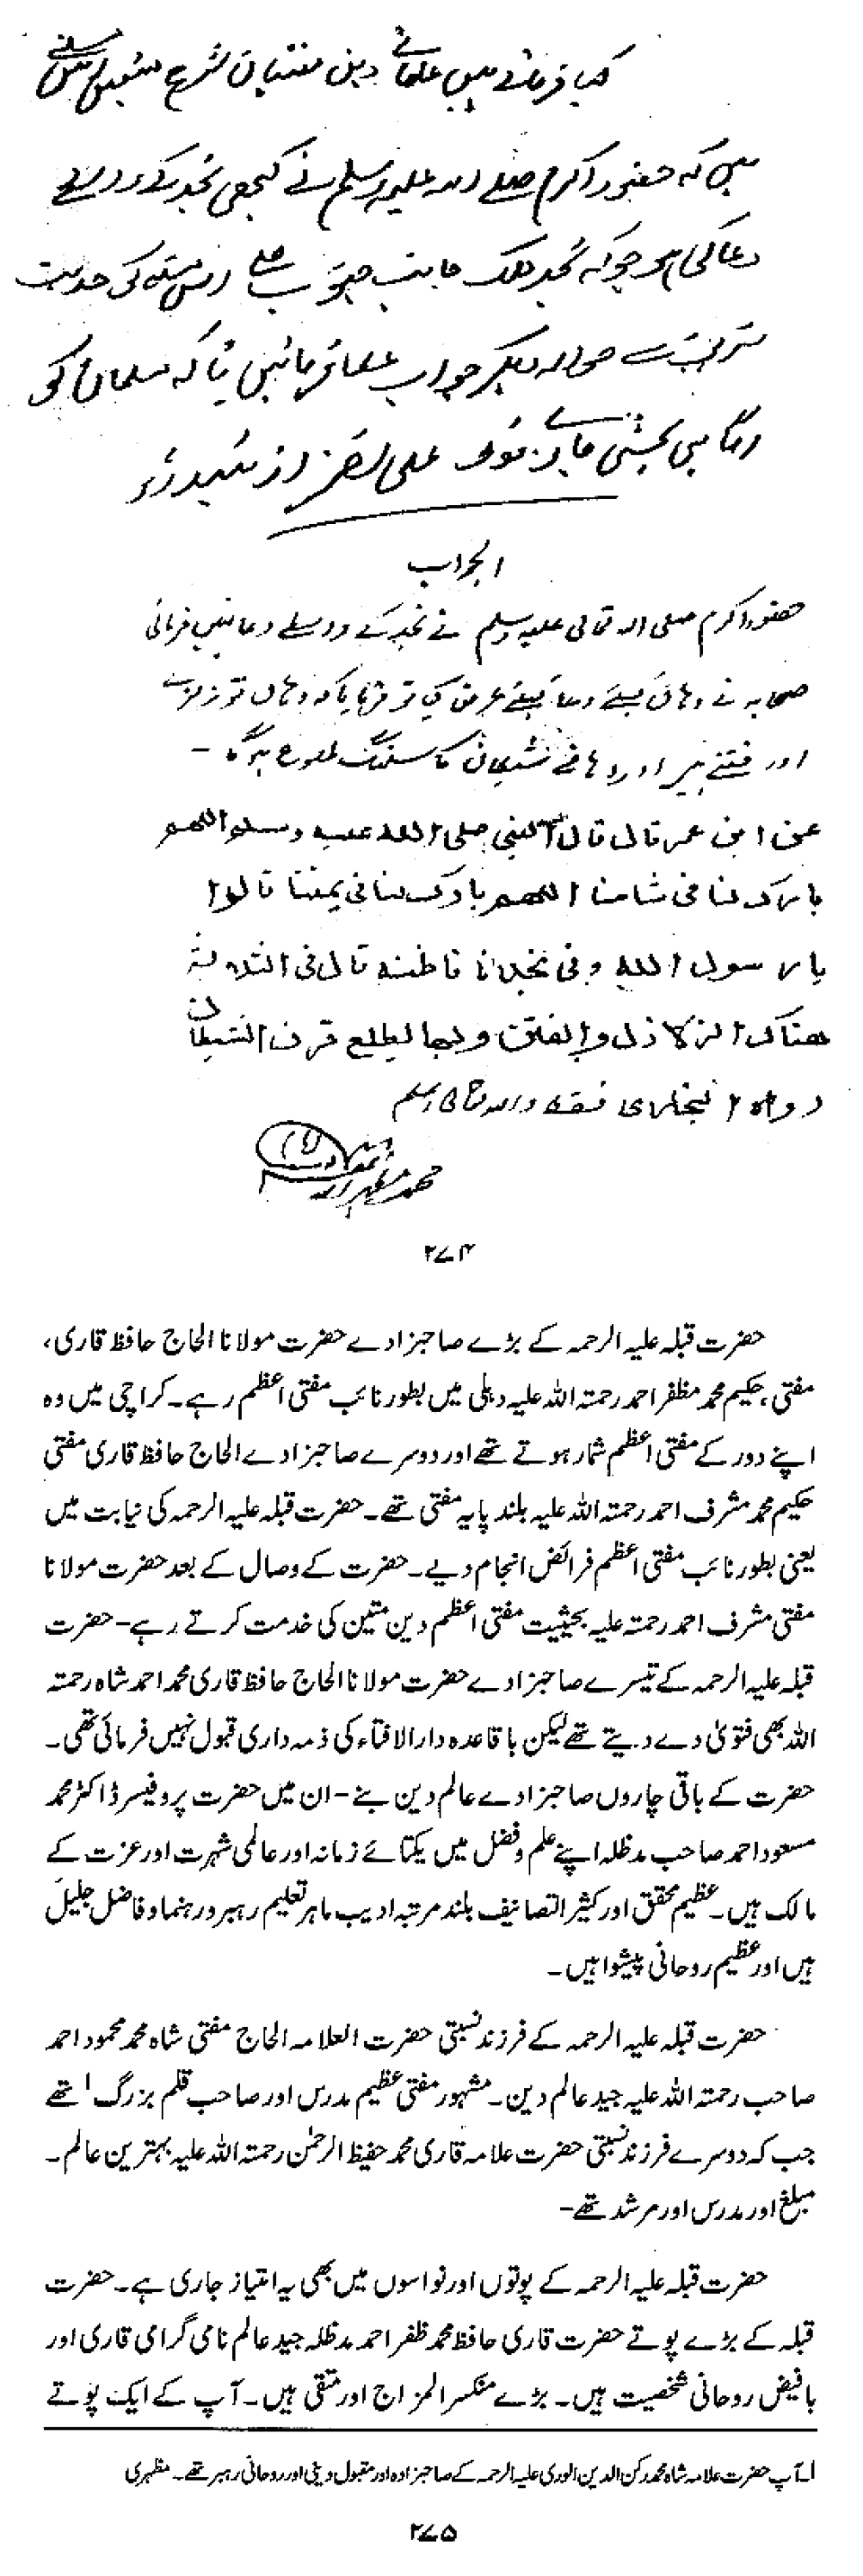 کیا فرماتے ہیں علمائے دین مفتیان شرع متین اس مسئلے
میں کہ حضور اکرم صلے اللہ علیہ وسلم نے کبھی نجد کے واسطے
دعا کی ہو جو کہ نجد ملک جانب جنوب ہے اس مسئلہ کی حدیث
شریف سے حوالہ دیکر جواب عطا فرمائیں تاکہ مسلمان کی
علی
الجواب
حضور اکرم صلی اللہ تعالی علیہ وسلم نے نجد کے واسطے دعا نہیں فرمائی
صحابہ نے وہاں کیلئے دعا کیلئے عرض کیا تو فرمایا کہ وہاں تو زلزلے
اور فتنے ہیں اور وہاں سے شیطان کا سینگ طلوع ہوگا -
عن ابن عمر قال قال النبی صلی اللہ علیہ وسلم اللھم
بارک لنا فی شامنا اللھم بارک لنا فی یمننا قالوا
یا رسول اللہ وفی نجدنا فاظنہ قال فی الثلاثۃ
ھناک الزلازل والفتن وبھا یطلع قرن الشیطان
رواہ البخاری فقط واللہ تعالی اعلم
محمد مظہر اللہ
۲۷۴
حضرت قبلہ علیہ الرحمہ کے بڑے صاحبزادے حضرت مولانا الحاج حافظ قاری،
مفتی، حکیم محمد مظفر احمد رحمتہ اللہ علیہ دہلی میں بطور نائب مفتی اعظم رہے۔ کراچی میں وہ
اپنے دور کے مفتی اعظم شمار ہوتے تھے اور دوسرے صاحبزادے الحاج حافظ قاری مفتی
حکیم محمد مشرف احمد رحمتہ اللہ علیہ بلند پایہ مفتی تھے۔ حضرت قبلہ علیہ الرحمہ کی نیابت میں
یعنی بطور نائب مفتی اعظم فرائض انجام دیے۔ حضرت کے وصال کے بعد حضرت مولانا
مفتی مشرف احمد رحمتہ علیہ بحیثیت مفتی اعظم دین متین کی خدمت کرتے رہے- حضرت
قبلہ علیہ الرحمہ کے تیسرے صاحبزادے حضرت مولانا الحاج حافظ قاری محمد احمد شاہ رحمتہ
اللہ بھی فتویٰ دے دیتے تھے لیکن باقاعدہ دارالافتاء کی ذمہ داری قبول نہیں فرمائی تھی۔
حضرت کے باقی چاروں صاحبزادے عالم دین بنے- ان میں حضرت پروفیسر ڈاکٹر محمد
مسعود احمد صاحب مدظلہ اپنے علم و فضل میں یکتائے زمانہ اور عالمی شہرت اور عزت کے
مالک ہیں۔ عظیم محقق اور کثیر التصانیف بلند مرتبہ ادیب ماہر تعلیم رہبر و رہنما و فاضل جلیل
ہیں اور عظیم روحانی پیشوا ہیں۔
حضرت قبلہ علیہ الرحمہ کے فرزند نسبتی حضرت العلامہ الحاج مفتی شاہ محمد محمود احمد
صاحب رحمتہ اللہ علیہ جید عالم دین۔ مشہور مفتی عظیم مدرس اور صاحب قلم بزرگ ا تھے
جب کہ دوسرے فرزند نسبتی حضرت علامہ قاری محمد حفیظ الرحمٰن رحمتہ اللہ علیہ بہترین عالم۔
مبلغ اور مدرس اور مرشد تھے-
حضرت قبلہ علیہ الرحمہ کے پوتوں اور نواسوں میں بھی یہ امتیاز جاری ہے۔ حضرت
قبلہ کے بڑے پوتے حضرت قاری حافظ محمد ظفر احمد مدظلہ جید عالم نامی گرامی قاری اور
بافیض روحانی شخصیت ہیں۔ بڑے منکسر المزاج اور متقی ہیں۔ آپ کے ایک پوتے
ا۔ آپ حضرت علامہ شاہ محمد رکن الدین الوری علیہ الرحمہ کے صاحبزادہ اور مقبول دینی اور روحانی رہبر تھے۔ مظہری
۲۷۵